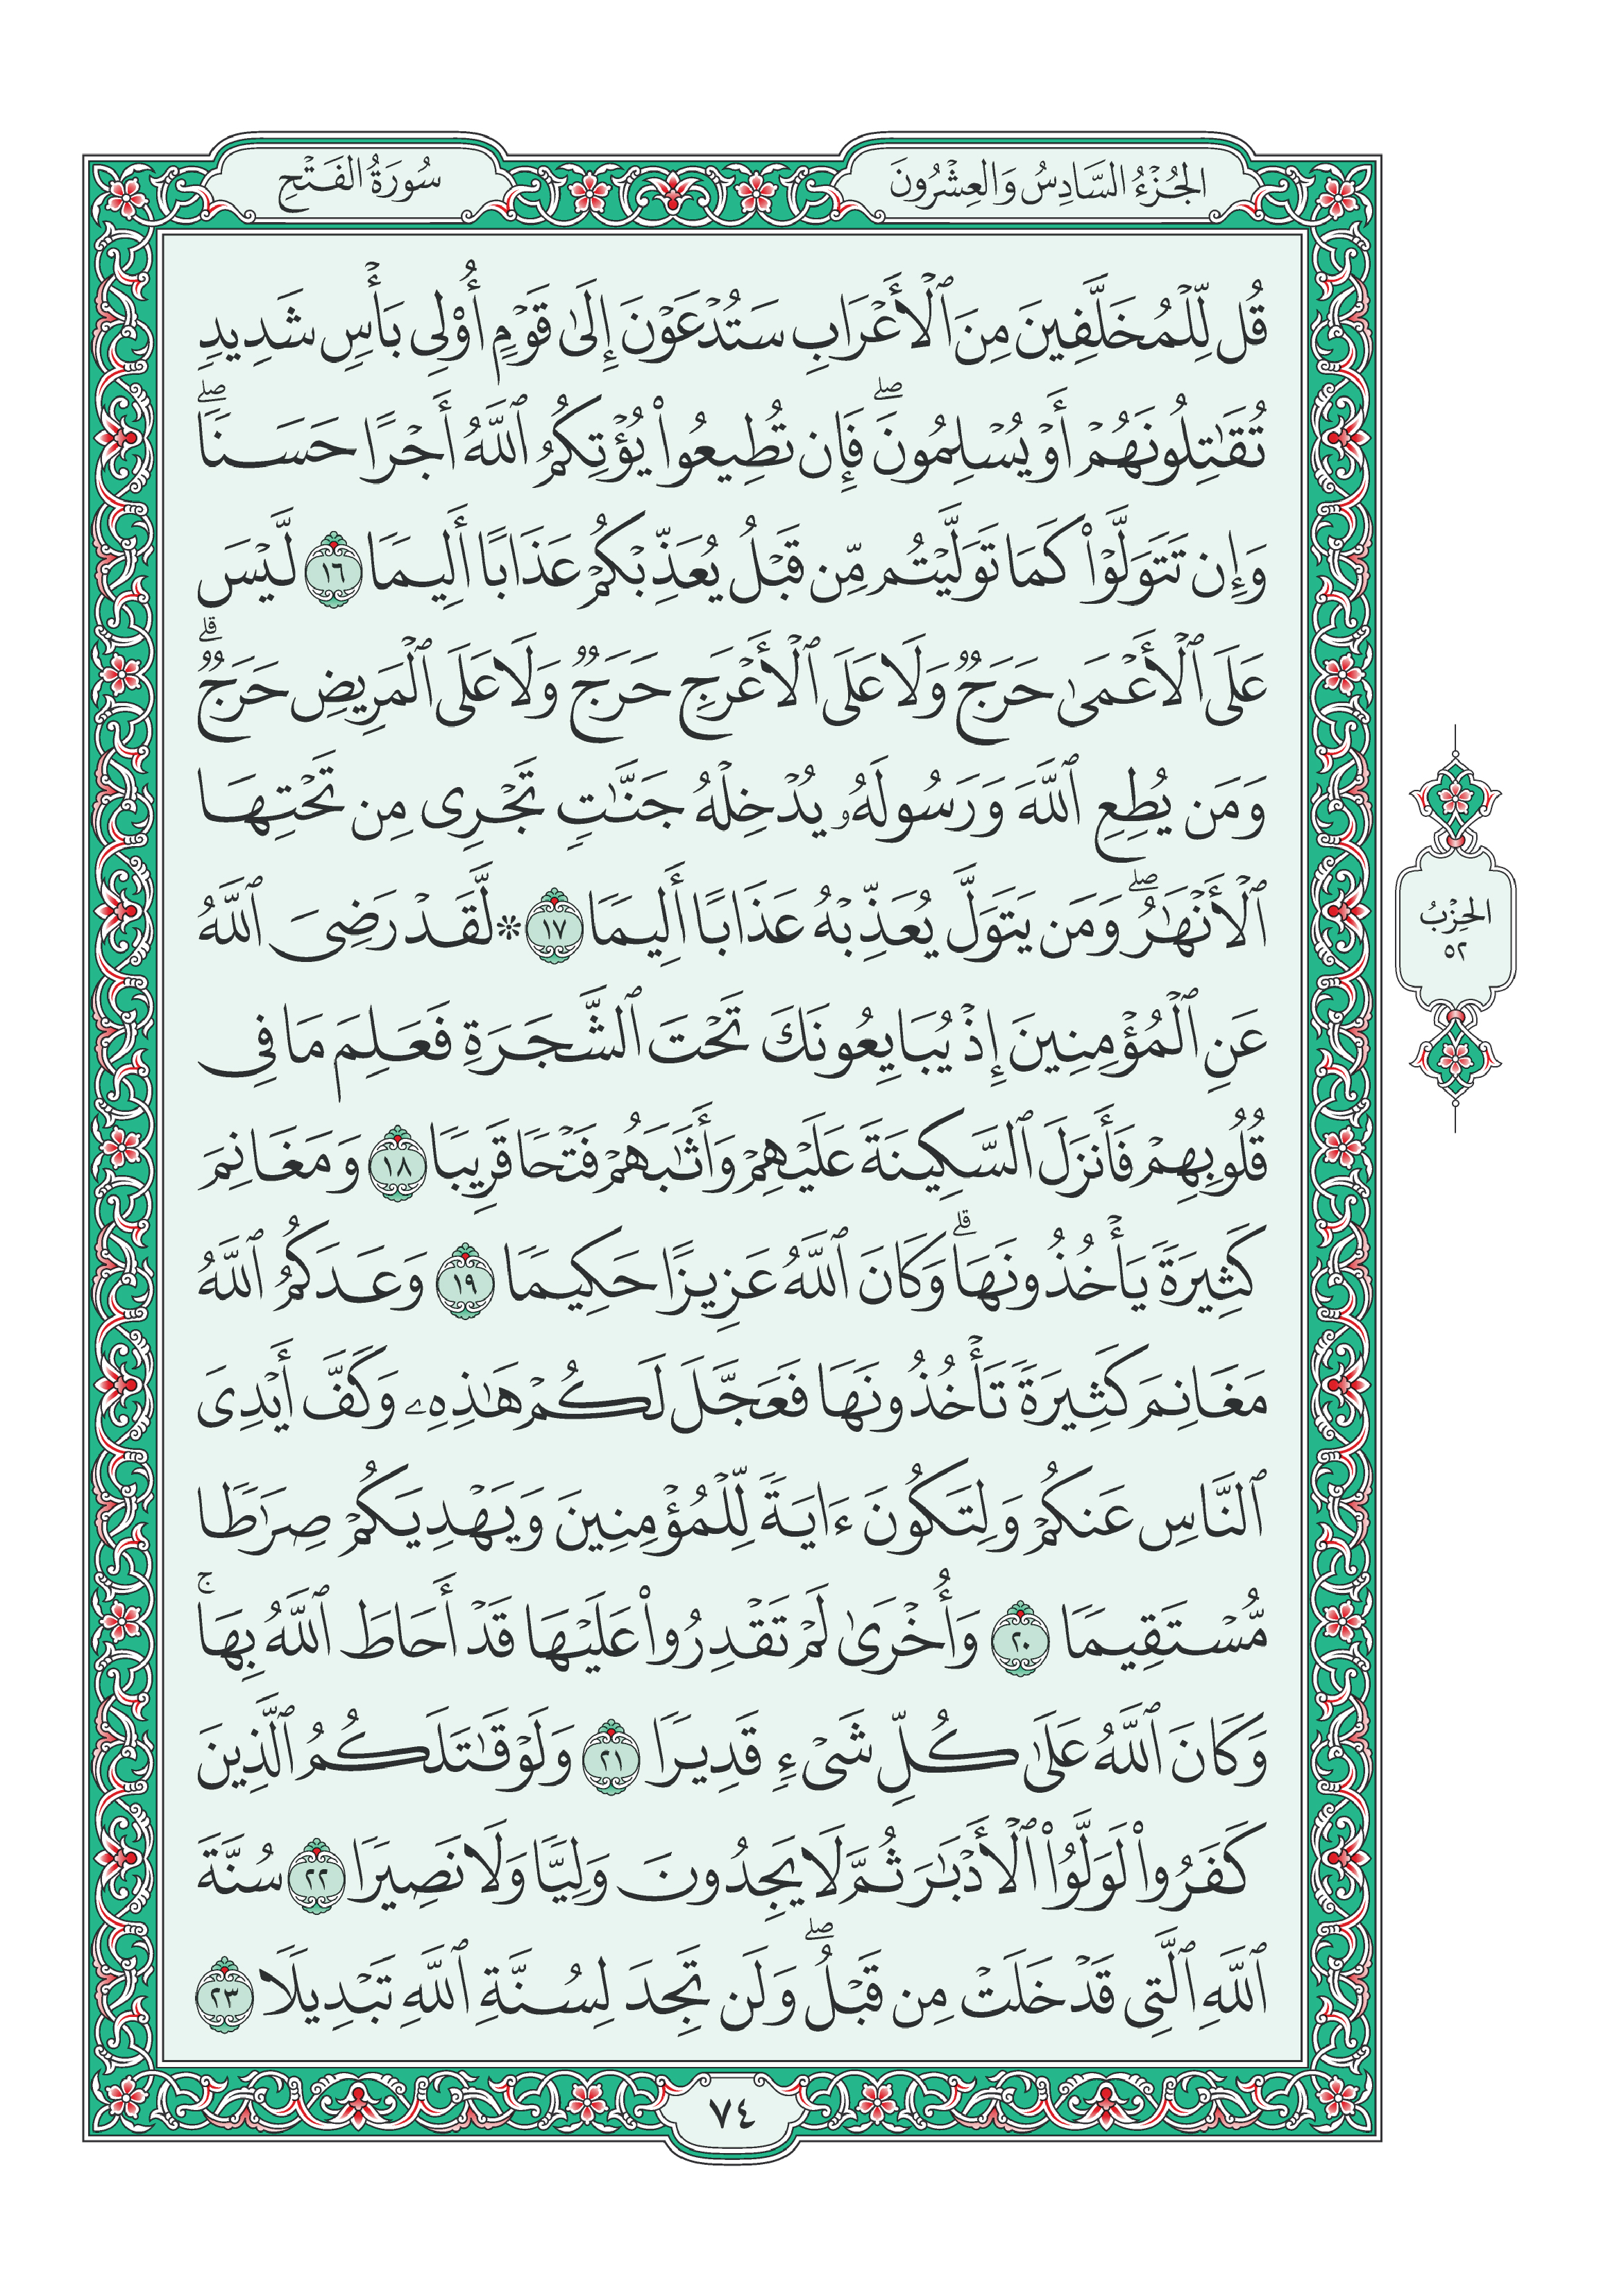 الجُزْءُ السَّادِسُ وَالعِشْرُونَ
سُورَةُ الفَتْحِ
قُل لِّلْمُخَلَّفِينَ مِنَ ٱلْأَعْرَابِ سَتُدْعَوْنَ إِلَىٰ قَوْمٍ أُوْلِى بَأْسٍ شَدِيدٍ
تُقَـٰتِلُونَهُمْ أَوْ يُسْلِمُونَ ۖ فَإِن تُطِيعُوا۟ يُؤْتِكُمُ ٱللَّهُ أَجْرًا حَسَنًا ۖ
وَإِن تَتَوَلَّوْا۟ كَمَا تَوَلَّيْتُم مِّن قَبْلُ يُعَذِّبْكُمْ عَذَابًا أَلِيمًا ١٦ لَّيْسَ
عَلَى ٱلْأَعْمَىٰ حَرَجٌ وَلَا عَلَى ٱلْأَعْرَجِ حَرَجٌ وَلَا عَلَى ٱلْمَرِيضِ حَرَجٌ ۗ
وَمَن يُطِعِ ٱللَّهَ وَرَسُولَهُۥ يُدْخِلْهُ جَنَّـٰتٍ تَجْرِى مِن تَحْتِهَا
ٱلْأَنْهَـٰرُ ۖ وَمَن يَتَوَلَّ يُعَذِّبْهُ عَذَابًا أَلِيمًا ١٧ * لَّقَدْ رَضِىَ ٱللَّهُ
عَنِ ٱلْمُؤْمِنِينَ إِذْ يُبَايِعُونَكَ تَحْتَ ٱلشَّجَرَةِ فَعَلِمَ مَا فِى
قُلُوبِهِمْ فَأَنزَلَ ٱلسَّكِينَةَ عَلَيْهِمْ وَأَثَـٰبَهُمْ فَتْحًا قَرِيبًا ١٨ وَمَغَانِمَ
كَثِيرَةً يَأْخُذُونَهَا ۗ وَكَانَ ٱللَّهُ عَزِيزًا حَكِيمًا ١٩ وَعَدَكُمُ ٱللَّهُ
مَغَانِمَ كَثِيرَةً تَأْخُذُونَهَا فَعَجَّلَ لَكُمْ هَـٰذِهِۦ وَكَفَّ أَيْدِىَ
ٱلنَّاسِ عَنكُمْ وَلِتَكُونَ ءَايَةً لِّلْمُؤْمِنِينَ وَيَهْدِيَكُمْ صِرَٰطًا
مُّسْتَقِيمًا ٢٠ وَأُخْرَىٰ لَمْ تَقْدِرُوا۟ عَلَيْهَا قَدْ أَحَاطَ ٱللَّهُ بِهَا ۚ
وَكَانَ ٱللَّهُ عَلَىٰ كُلِّ شَىْءٍ قَدِيرًا ٢١ وَلَوْ قَـٰتَلَكُمُ ٱلَّذِينَ
كَفَرُوا۟ لَوَلَّوُا۟ ٱلْأَدْبَـٰرَ ثُمَّ لَا يَجِدُونَ وَلِيًّا وَلَا نَصِيرًا ٢٢ سُنَّةَ
ٱللَّهِ ٱلَّتِى قَدْ خَلَتْ مِن قَبْلُ ۖ وَلَن تَجِدَ لِسُنَّةِ ٱللَّهِ تَبْدِيلًا ٢٣
الحِزْبُ
٥٢
٧٤